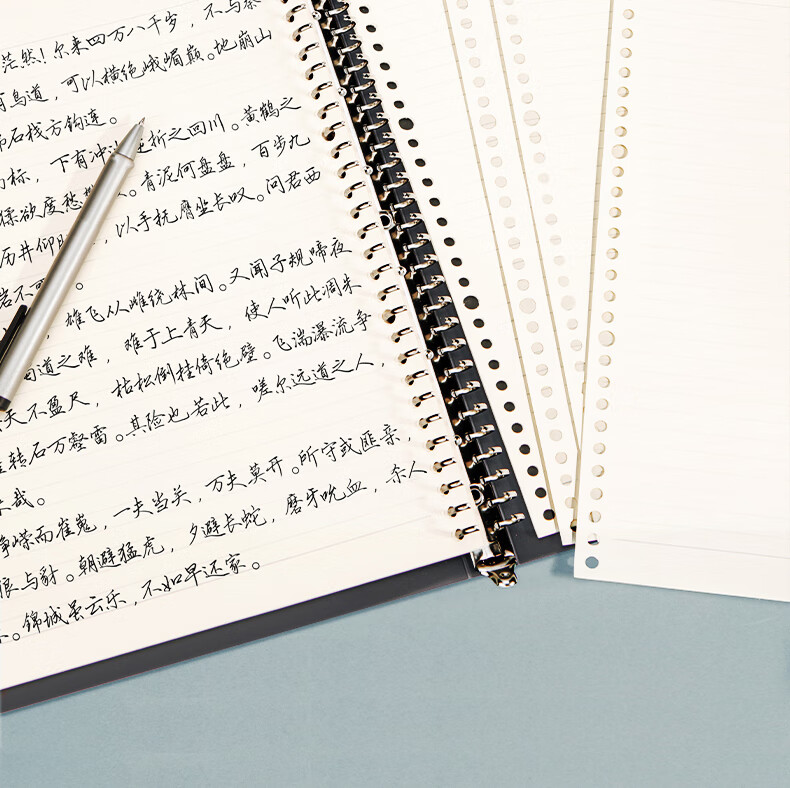 茫然!尔来四万八千岁,不与秦
有鸟道,可以横绝峨嵋巅。地崩山
石栈方钩连。
标,下有冲 折之四川。黄鹤之
猱欲度愁 。青泥何盘盘,百步九
历井仰 ,以手抚膺坐长叹。问君西
岩不可 。
雄飞从雌绕林间。又闻子规啼夜
蜀道之难,难于上青天,使人听此凋朱
天不盈尺,枯松倒挂倚绝壁。飞湍瀑流争
转石万壑雷。其险也若此,嗟尔远道之人,
来哉。
峥嵘而崔嵬,一夫当关,万夫莫开。所守或匪亲,
狼与豺。朝避猛虎,夕避长蛇,磨牙吮血,杀人
。锦城虽云乐,不如早还家。